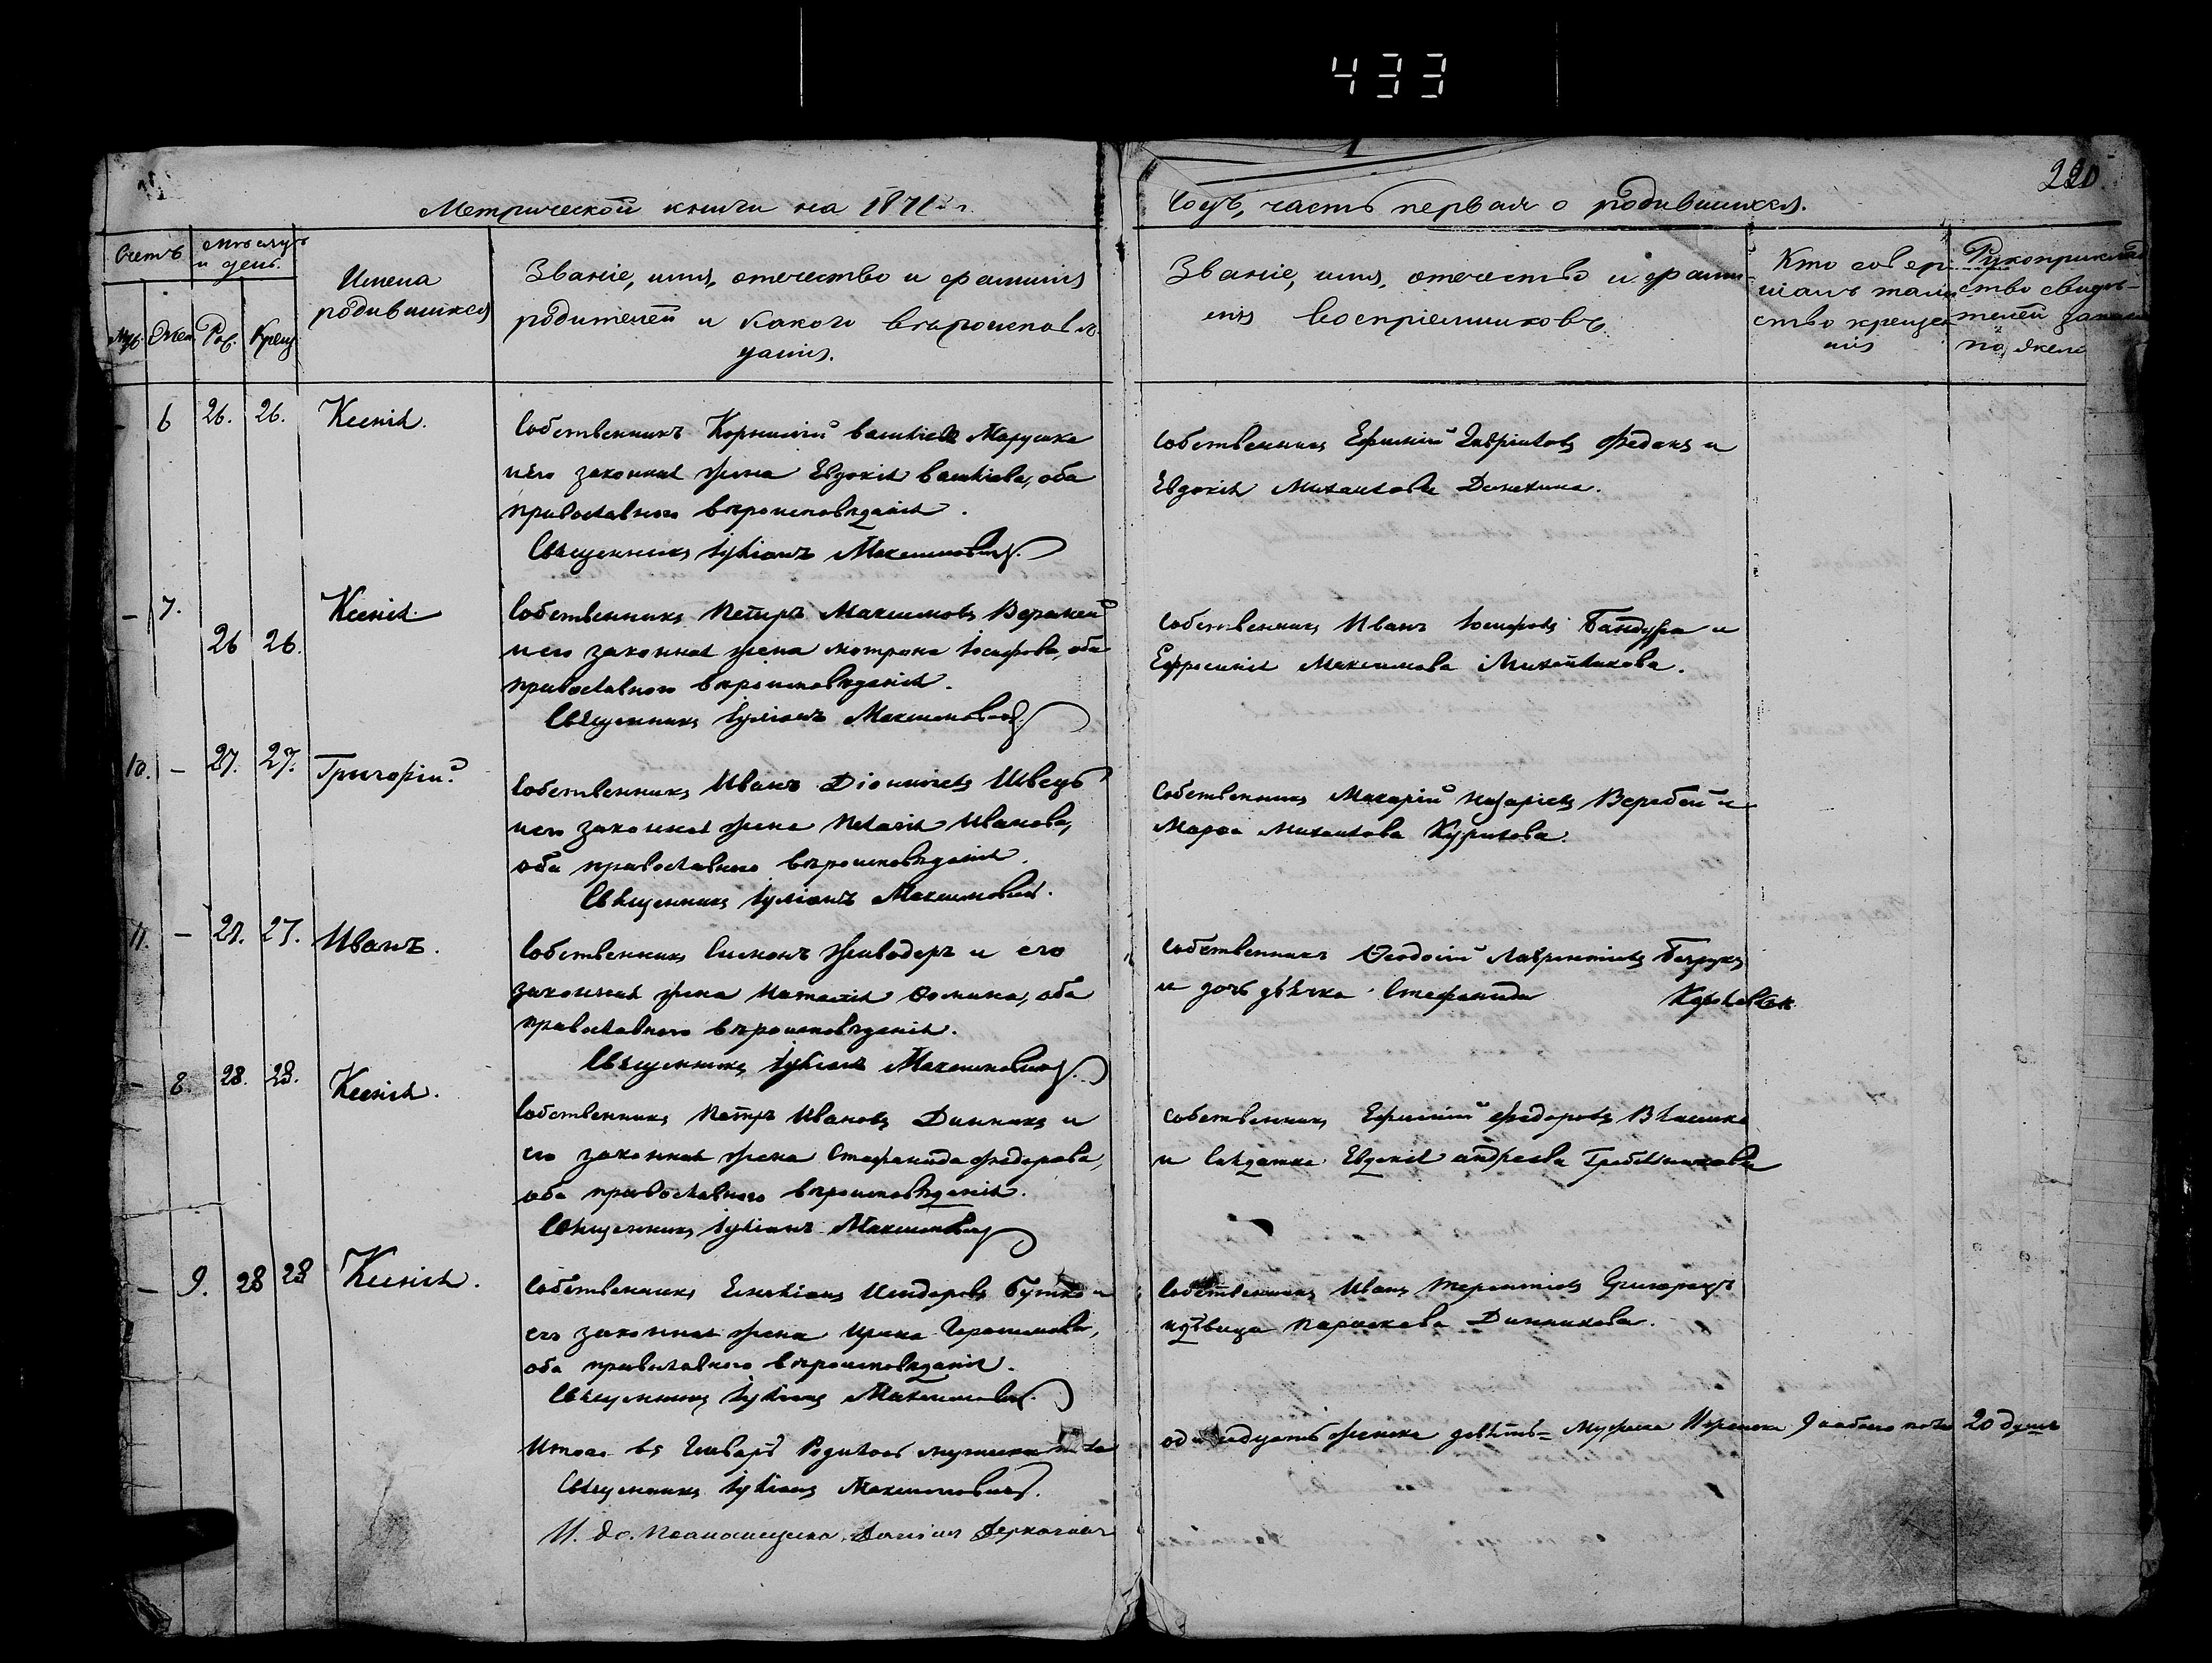 433
220
Метрической книги на 1871 г.
годъ, часть первая о родившихся.
Счетъ
Мѣсяцъ и день.
Муж.
Жен.
Рож.
Крещ.
Имена
родившихся
Званіе, имя, отечество и фамилія
родителей и какого вѣроисповѣ-
данія.
Званіе, имя, отечество и фами-
лія воспріемниковъ.
Кто совер-
шалъ таин-
ство креще-
нія
Рукоприклад-
ство свидѣ-
телей записи
по жела
- 6 26. 26. Ксенія.
Собственникъ Корнилій Василіевъ Марушка
и его законная жена Евдокія Василіева, оба
православного вѣроисповѣданія.
Священникъ Іуліанъ Максимовичъ.
Собственникъ Ефимій Гавріиловъ Федакъ и
Евдокія Михаилова
- 7. 26 26. Ксенія
Собственникъ Петръ Максимовъ
и его законная жена Мотрона Іосифова, оба
православного вѣроисповѣданія.
Священникъ Іуліанъ Максимовичъ.
Собственникъ Иванъ Іосифовъ Бандура и
Ефросинія Максимова Михайликова.
10. - 27. 27. Григорій.
Собственникъ Иванъ Діонисіевъ Швецъ
и его законная жена Пелагія Иванова,
оба православного вѣроисповѣданія.
Священникъ Іуліанъ Максимовичъ.
Собственникъ Макарій Назаріевъ Веребей и
Марѳа Михаилова Курилова.
11. - 27. 27. Иванъ.
Собственникъ Симонъ Живодеръ и его
законная жена Наталія Ѳомина, оба
православного вѣроисповѣданія.
Священникъ Іуліанъ Максимовичъ.
Собственникъ Ѳеодосій Лаврентіевъ
и дочь дьячка Стефанида
- 8. 28. 28. Ксенія.
Собственникъ Петръ Ивановъ Динникъ и
его законная жена Стефанида Федорова,
оба православного вѣроисповѣданія.
Священникъ Іуліанъ Максимовичъ
Собственникъ Ефимій Федоровъ
и солдатка Евдокія Андреева Гребенникова
- 9. 28 28 Ксенія.
Собственникъ Емиліанъ Исидоровъ Бутко и
его законная жена Ирина Герасимова,
оба православного вѣроисповѣданія.
Священникъ Іуліанъ Максимовичъ.
Собственникъ Иванъ Терентіевъ Григорецъ
и дѣвица Параскева Динникова.
Итого въ Январѣ Родилось мужеска пола
одинадцать женска девять = Мужска 11 женска 9 а обоего пола 20 душъ
Священникъ Іуліанъ Максимовичъ.
И. до. Псаломщика